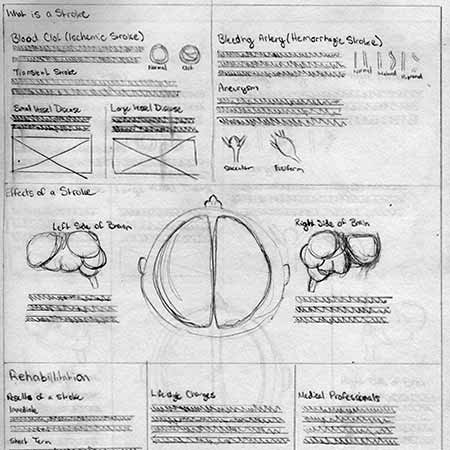 What is a Stroke
Blood Clot (Ischemic Stroke)
Normal
Clot
Transient Stroke
Small Vessel Disease
Large Vessel Disease
Bleeding Artery (Hemorrhagic Stroke)
Normal
Ruptured
Aneurysm
Saccular
Fusiform
Effects of a Stroke
Left Side of Brain
Right Side of Brain
Rehabilitation
Results of a Stroke
Immediate
Short Term
Lifestyle Changes
Medical Professionals